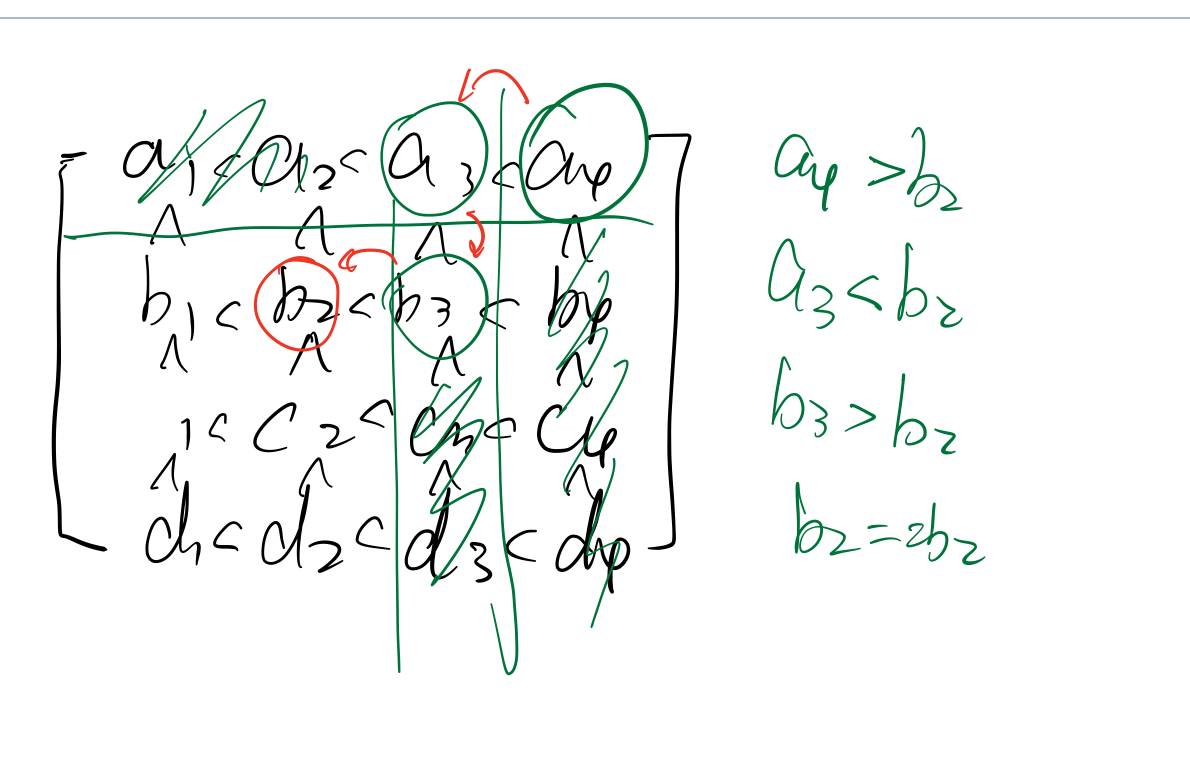 a1 < a2 < a3 < a4
∧ ∧ ∧ ∧
b1 < b2 < b3 < b4
∧ ∧ ∧ ∧
1 < c2 < c3 < c4
∧ ∧ ∧ ∧
d1 < d2 < d3 < d4
a4 > b2
a3 < b2
b3 > b2
b2 == b2